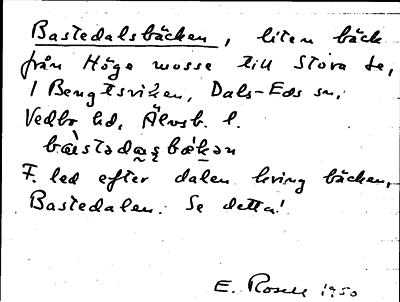 Bastedalsbäcken, liten bäck
från Höge mosse till Stora Le,
i Bengtsviken, Dals-Eds sn,
Vedbo hd, Älvsb. l.
bàstədaʂbækən
F. led efter dalen kring bäcken,
Bastedalen. Se detta!
E. Rosell 1950